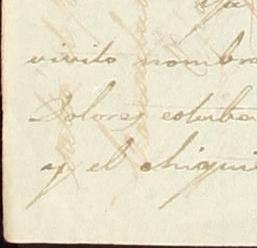 ya
vivito nombra
Dolores estuba
y el chiqui